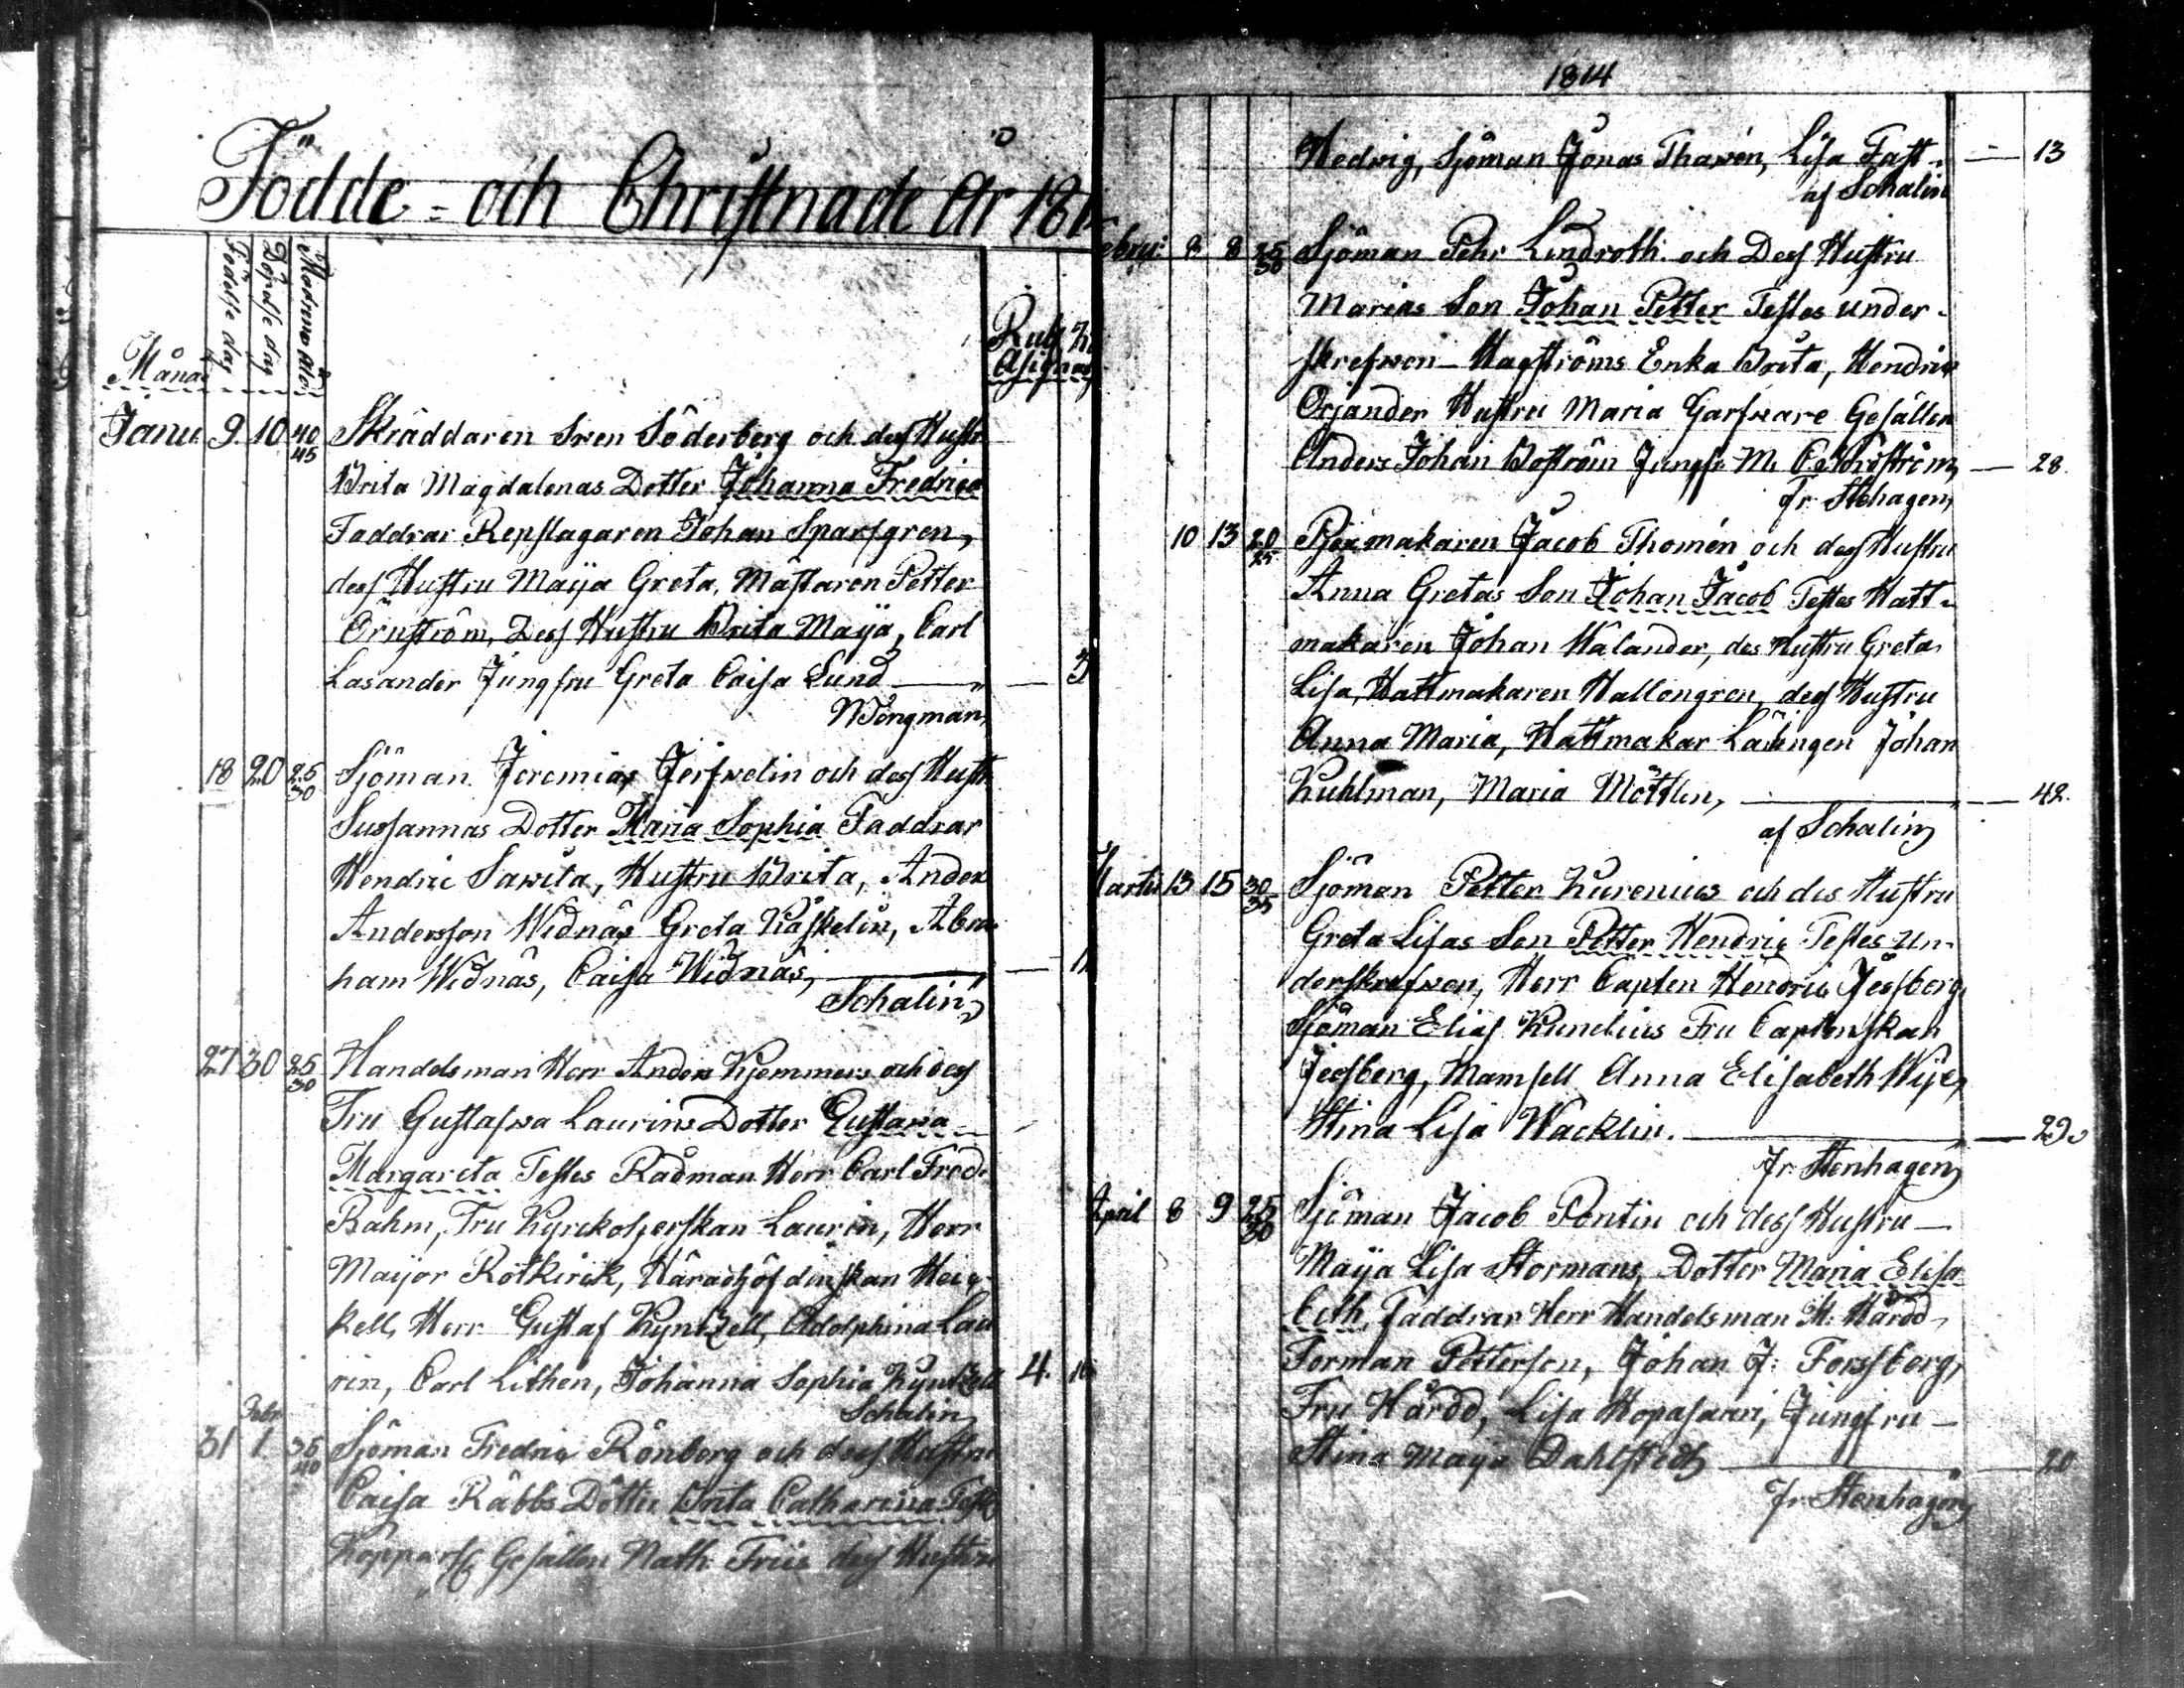 Födde - och Christnade År 181
Månad
Födelse dag
Döpelse dag
Modrens Ål:
Rub
Asignat
Janu: 9 10 40/45 Skräddaren Swen Söderberg och dess Hustr
Brita Magdalenas Dotter Johanna Fredrica
Faddrar Repslagaren Johan Sparfgren,
dess Hustru Maija Greta, Mästaren Petter
Örnström, Dess Hustru Brita Maija, Carl
Lasander Jungfru Greta Caisa Lund — 3
Wongman
18 20 25/30 Sjöman Jeremias Jerfwelin och dess Hustr
Sussannas Dotter Maria Sophia Faddrar
Hendric Sawila, Hustru Brita, Anders
Andersson Widnäs Greta Käskelin, Abra
ham Widnäs, Caisa Widnäs, — 11
Schalin
27 30 25/30 Handelsman Herr Anders Kjemmers och dess
Fru Gustafwa Laurins Dotter Gustava
Margareta Testes Rådman Herr Carl Fred.
Rahm, Fru Kyrckoherskan Laurin, Herr
Maijor Rotkirck, Häradshöfdinskan Hei
kell, Herr Gustaf Kyntzell, Adolphina Lau
rin, Carl Lithen, Johanna Sophia Kyntzell 4. 10
Schalin
31 Febr 1. 35/40 Sjöman Fredric Rönberg och dess Hustru
Caisa Räbbs Dotter Brita Catharina Test
Koppars: Gesällen Nath: Friis dess Hustru
1814
Hedvig, Sjöman Jonas Thawén, Lisa Fast — 13
af Schalin
Febru: 8 8 25/30 Sjöman Pehr Lindroth och Dess Hustru
Marias Son Johan Petter Testes under-
skrefwen – Hagströms Enka Brita, Hendric
Orjander Hustru Maria Garfware Gesällen
Anders Johan Boström Jungfr: M: C: Boström, — 28.
Fr. Stenhagen
10 13 20/25 Pjexmakaren Jacob Thomén och dess Hustru
Anna Gretas Son Johan Jacob Testes Hatt-
makaren Johan Wålander, des Hustru Greta
Lisa, Hattmakaren Hallongren, dess Hustru
Anna Maria, Hattmakar Lärlingen Johan
Kuhlman, Maria Möttlin, — 42.
af Schalin
Martii 13 15 30/35 Sjöman Petter Kurenius och des Hustru
Greta Lisas Son Petter Hendric Testes Un-
derskrefwen, Herr Capten Hendric Jessberg
Sjöman Elias Kunelius Fru Captenskan
Jessberg, Mamsell Anna Elisabeth Wije,
Stina Lisa Wacklin. — 29.
Fr. Stenhagen
April 8 9 25/30 Sjöman Jacob Pontin och dess Hustru –
Maija Lisa Stormans Dotter Maria Elisa
beth, Faddrar Herr Handelsman M: Hårdd,
Forman Petterson, Johan J: Forssberg,
Fru Hårdd, Lisa Hopasarri, Jungfru –
Stina Maija Dahlstedt — 20
Fr. Stenhagen